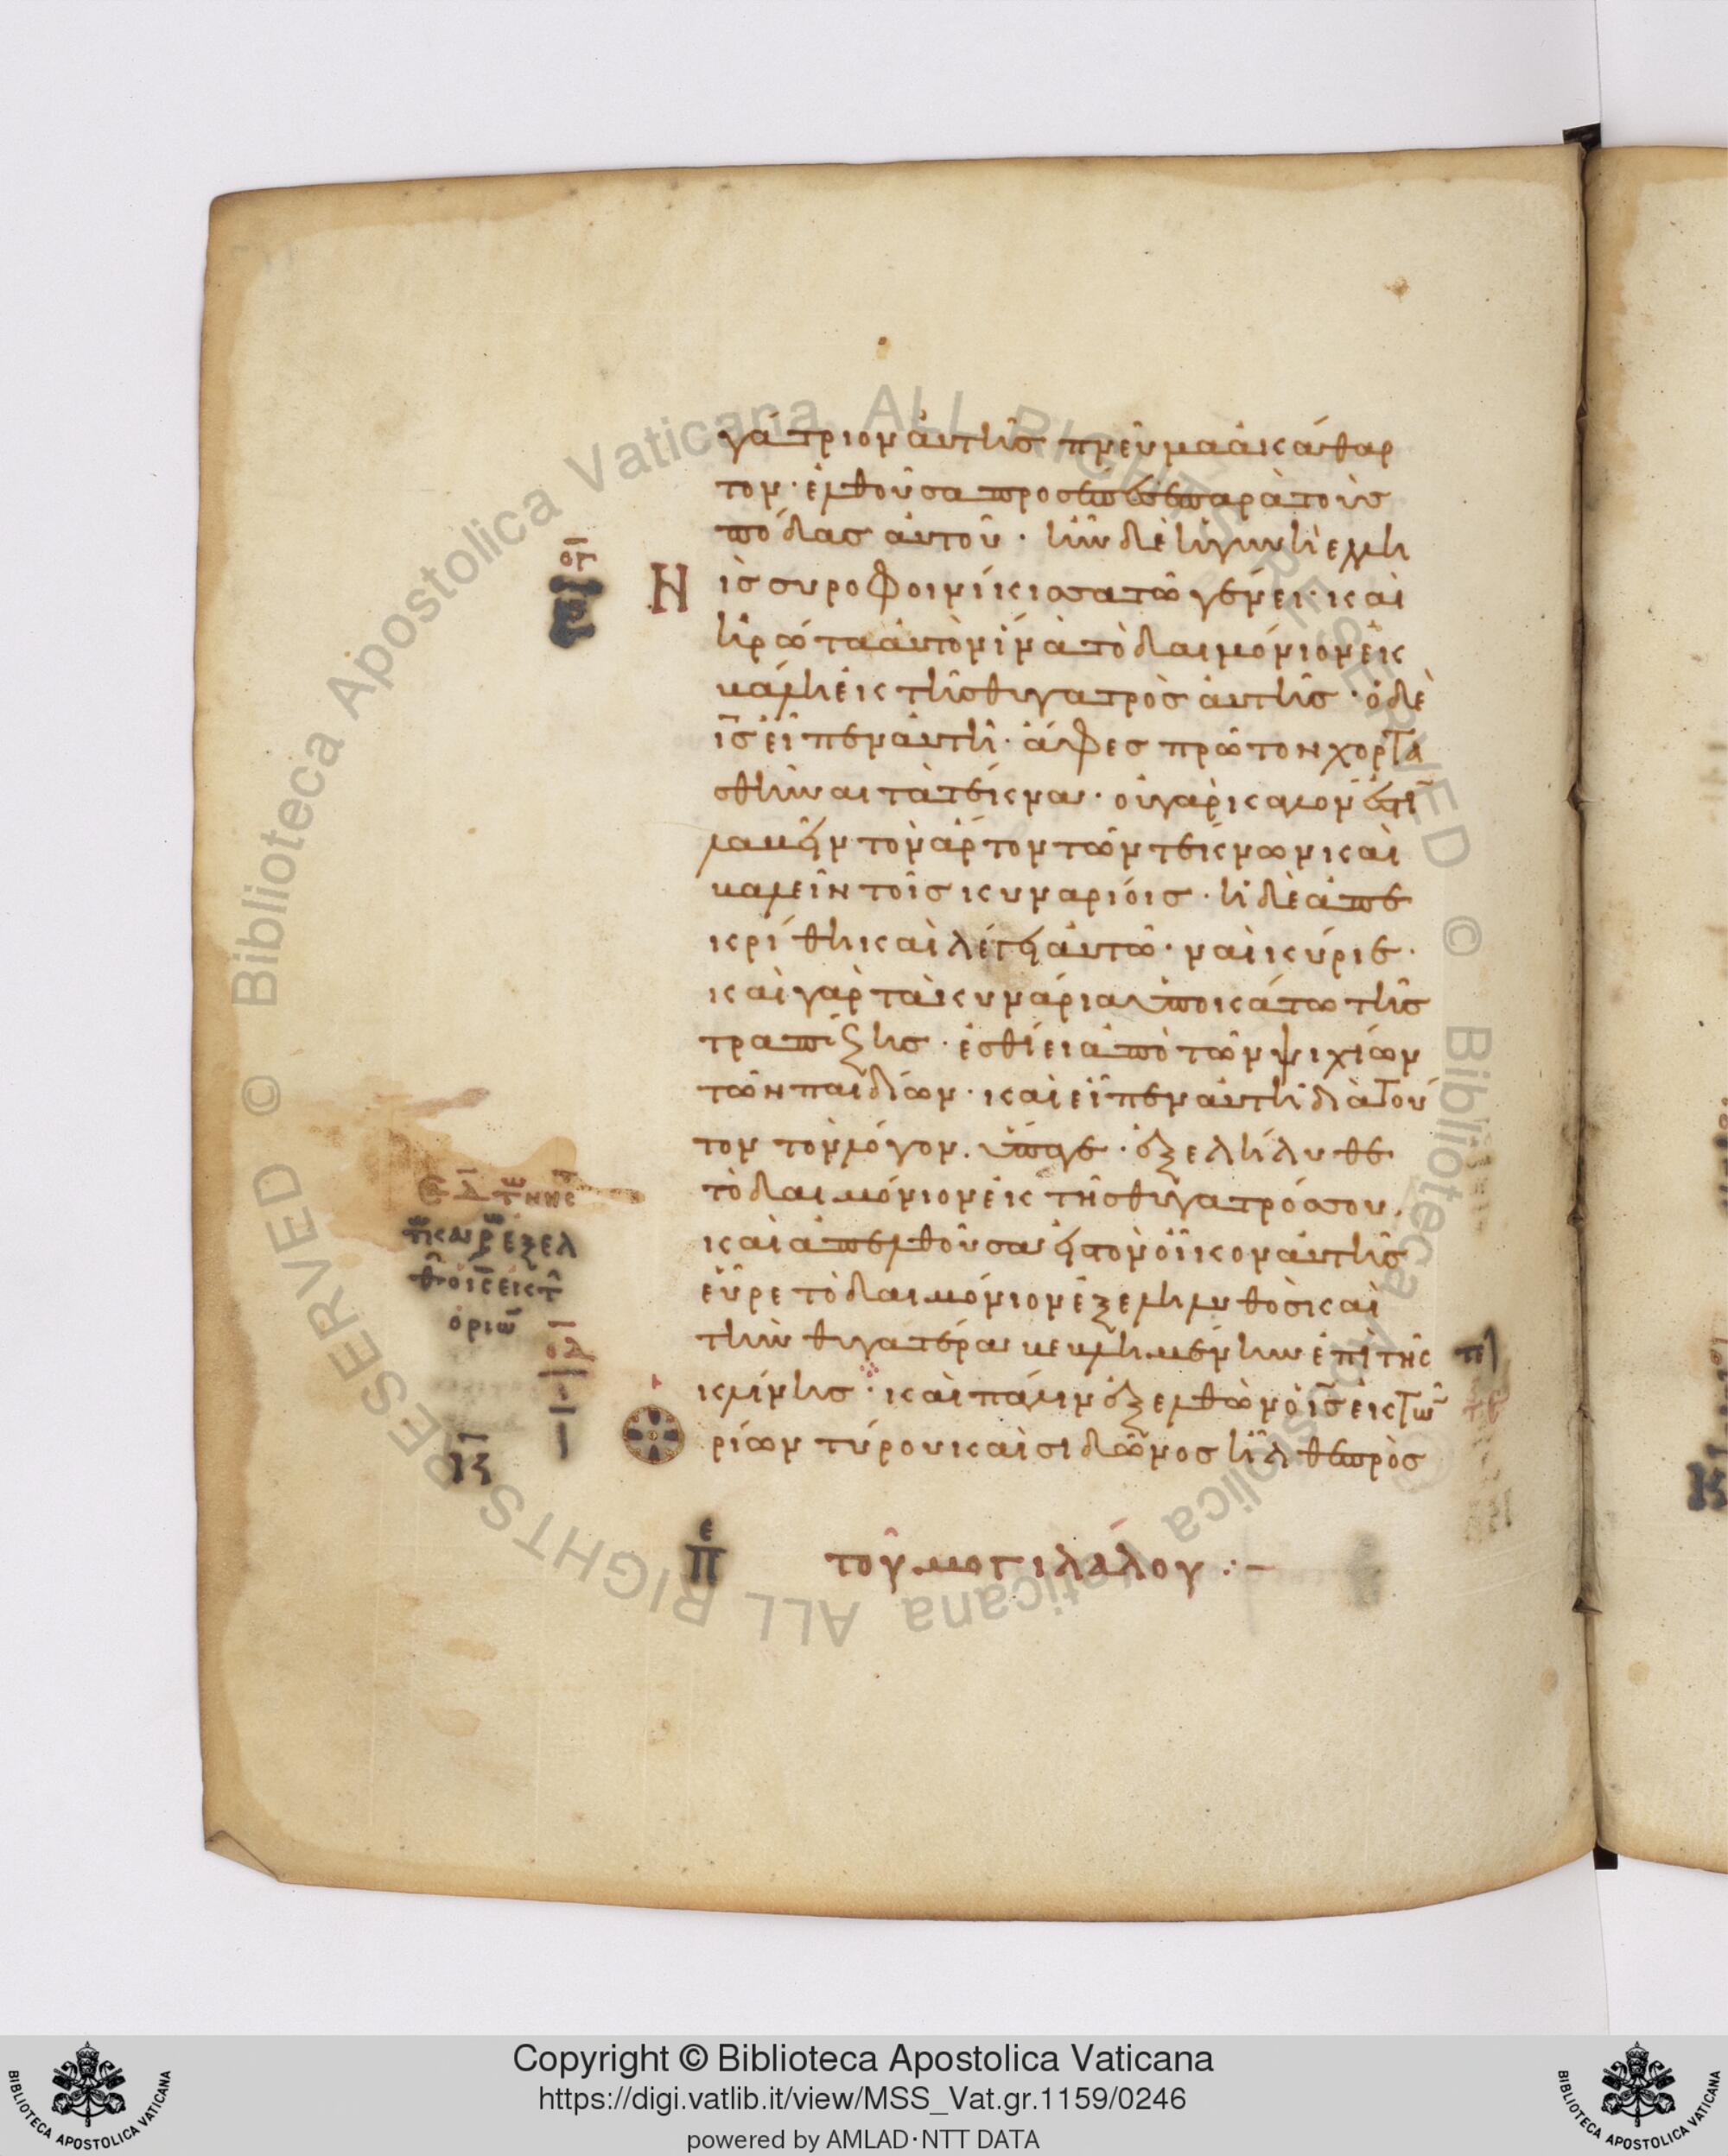 γάτριον ἀυτῆσ πνεῦμα ἀκάθαρ
τον· ἐλθοῦσα προσέπεσε παρὰ τοὺσ
πόδασ ἀυτοῦ· ἦν δὲ ἡ γυνὴ ελλη
οΓ
Η
ὶσ συροφοινίκισσα τῶ γένει· καὶ
ἠρώτα ἀυτὸν ἵνα τὸ δαιμόνιον ἐκ
βάλη ἐκ τῆσ θυγατρὸσ ἀυτῆσ· ὁ δὲ
ι̅σ̅ εἶπεν ἀυτῆ· ἄφεσ πρῶτον χορτα
σθῆναι τὰ τέκνα· οὐ γὰρ καλόν ἐστι
λαβεῖν τὸν ἄρτον τῶν τέκνων καὶ
βαλεῖν τοῖσ κυναρίοισ· ἡ δὲ ἀπε
κρίθη καὶ λέγει ἀυτῶ· ναὶ κύριε·
καὶ γὰρ τὰ κυνάρια ὑποκάτω τῆσ
τραπέζησ· ἐσθίει ἀπὸ τῶν ψιχίων
τῶν παιδίων· καὶ εἶπεν ἀυτῆ διὰ τοῦ
τον τὸν λόγον. ὕπαγε· ἐξελήλυθε
τὸ δαιμόνιον ἐκ τῆσ θυγατρόσ σου.
καὶ ἀπελθοῦσα εἰσ τὸν οἶκον ἀυτῆσ
εὗρε τὸ δαιμόνιον ἐξεληλυθὸσ καὶ
τὴν θυγατέρα βεβλημένην ἐπὶ τῆς
κλίνησ· καὶ πάλιν ἐξελθὼν ὁ ι̅σ̅ ἐκ τῶ
ρίων τύρου καὶ σιδῶνοσ ἦλθε πρὸσ
ὁριω
οδ
ι
Π ε τοῦ μογιλάλου :–
Copyright © Biblioteca Apostolica Vaticana
https://digi.vatlib.it/view/MSS_Vat.gr.1159/0246
powered by AMLAD·NTT DATA
BIBLIOTECA APOSTOLICA VATICANA
BIBLIOTECA APOSTOLICA VATICANA
© Biblioteca Apostolica Vaticana ALL RIGHTS RESERVED
© Biblioteca Apostolica Vaticana ALL RIGHTS RESERVED